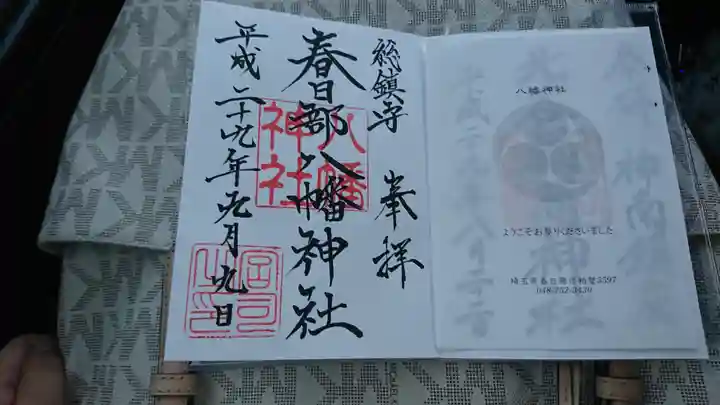 奉拝
総鎮守
春日部八幡神社
八幡
神社
平成二十九年九月九日
宮司
之印
八幡神社
ようこそお参りくださいました
埼玉県春日部市粕壁5597
048-752-3430